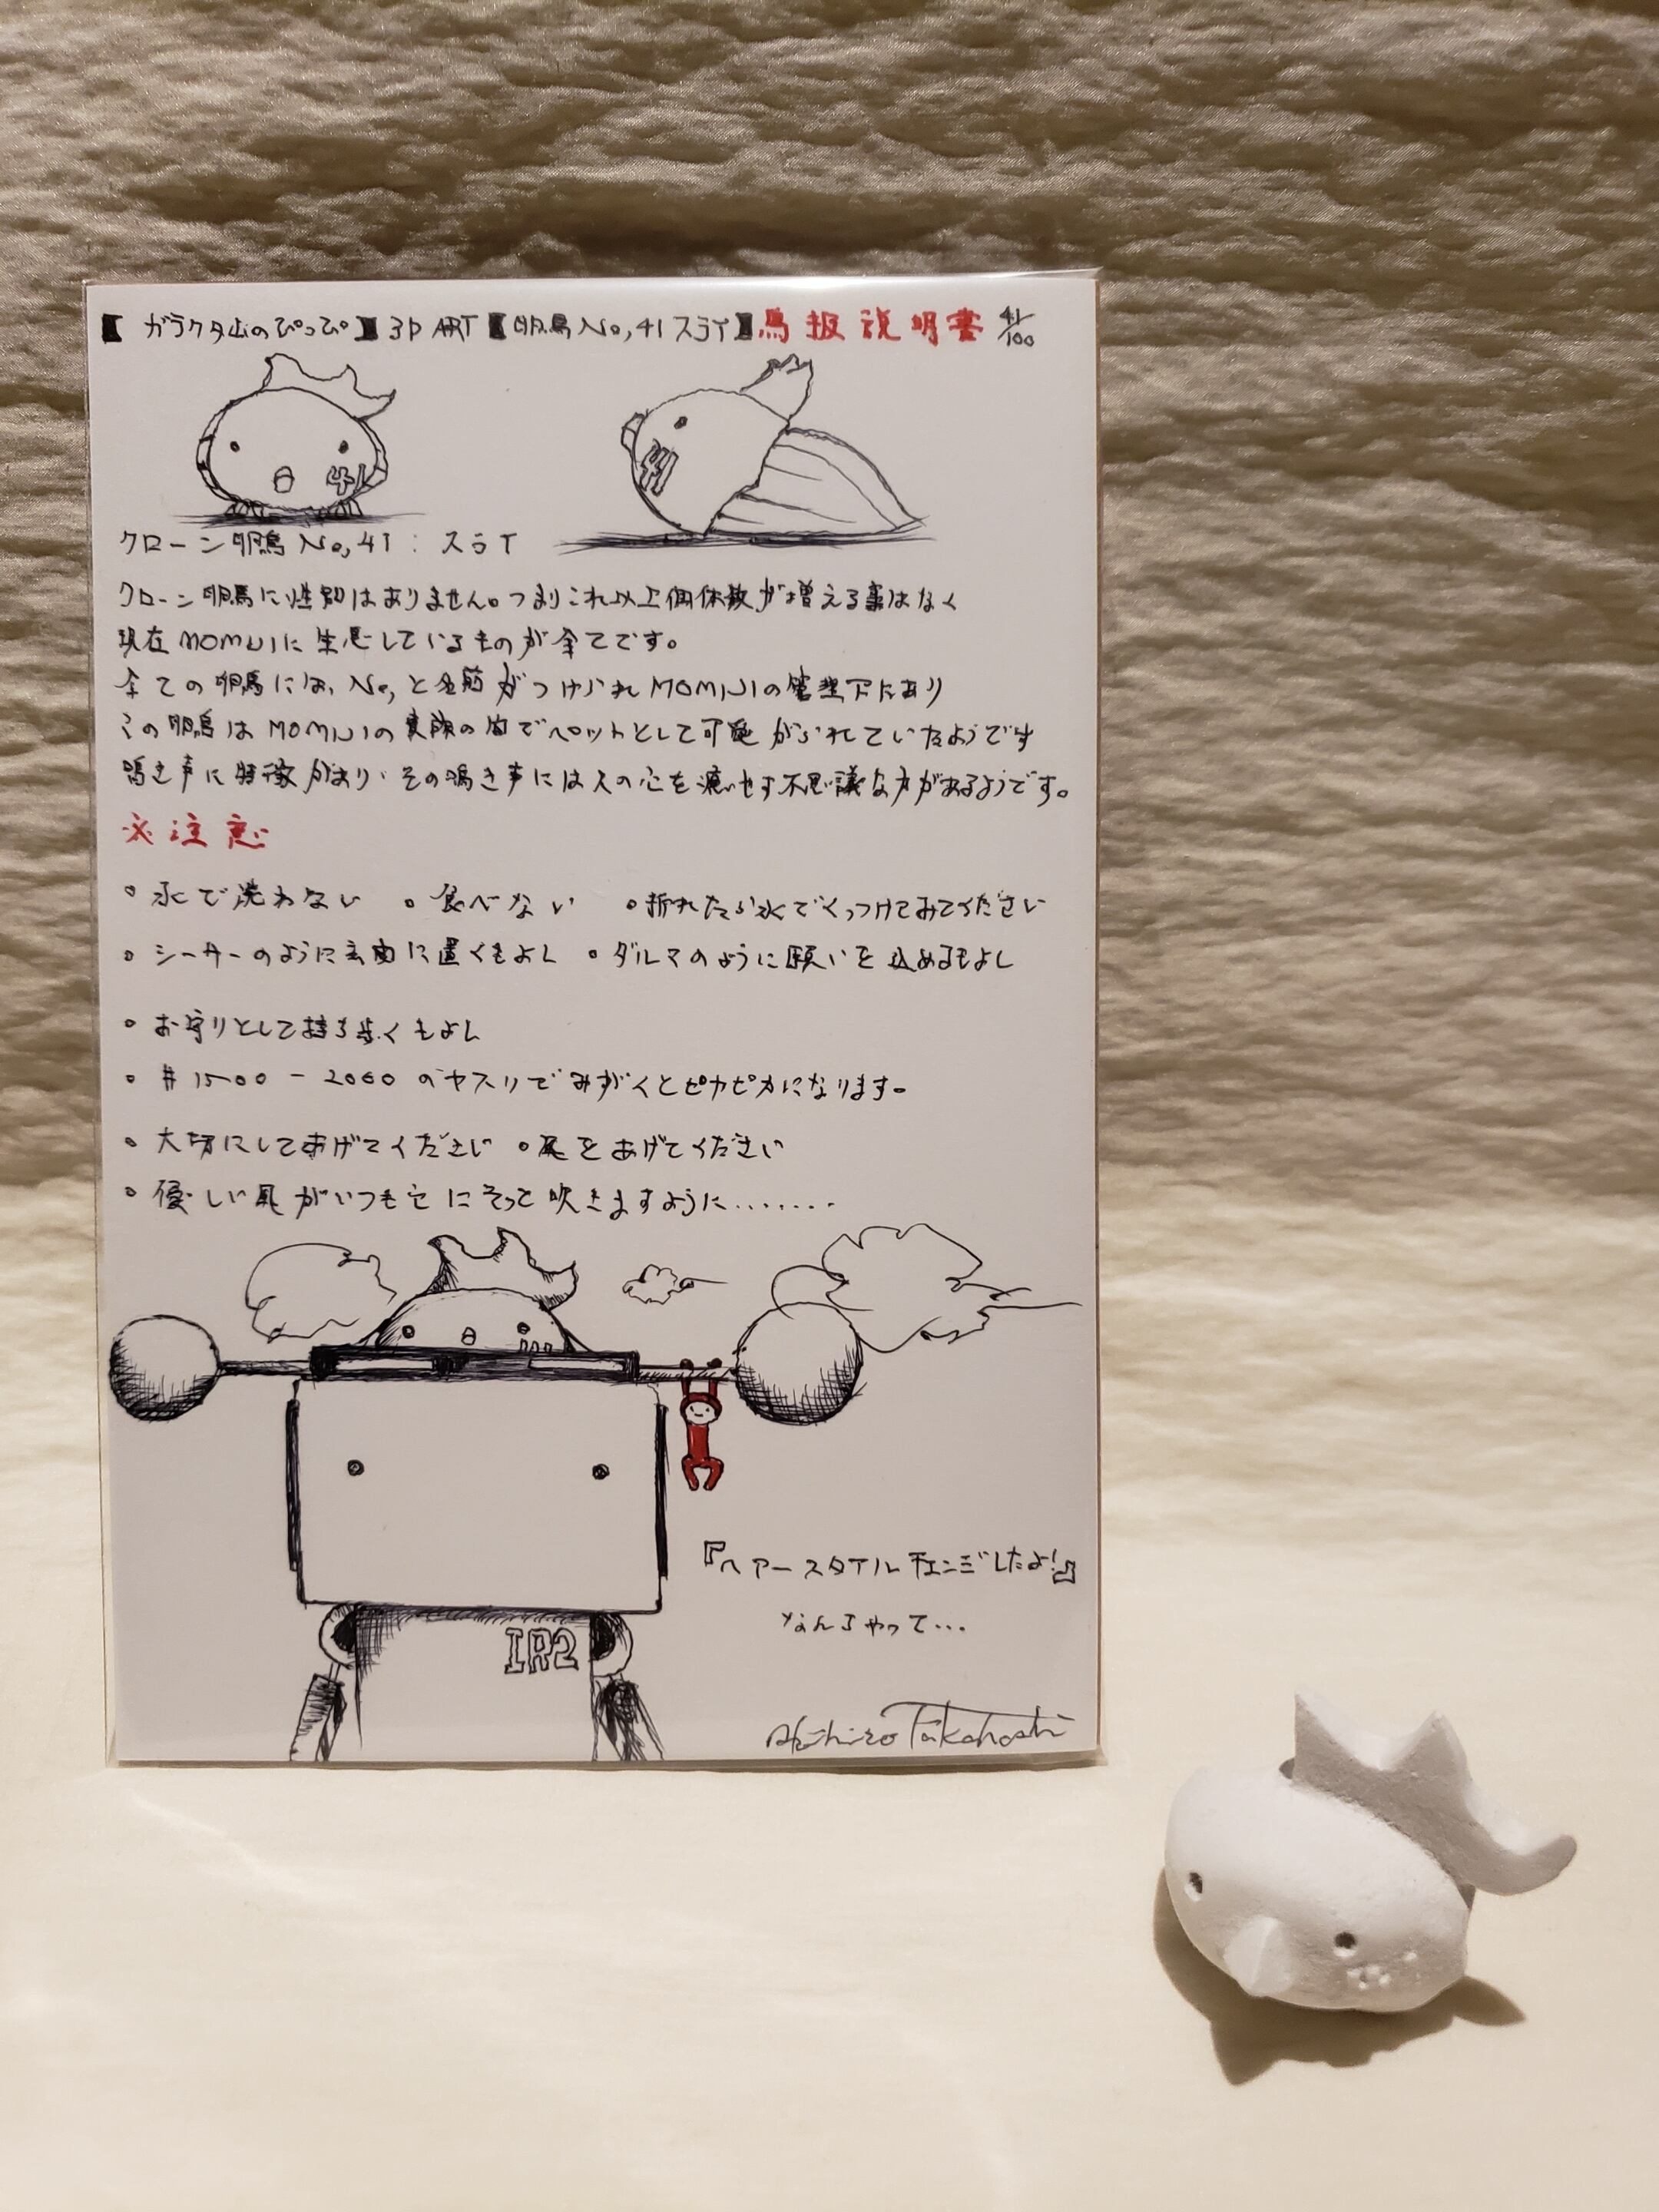 【ガラクタ山のぴっぴ】3D ART【朋鳥No,41スライ】鳥扱説明書 41/100
41
41
クローン朋鳥 No,41 : スライ
クローン朋鳥に性別はありません。つまりこれ以上個体数が増える事はなく
現在MOMIJIに生息しているものが全てです。
全ての朋鳥には、No,と名前がつけられMOMIJIの管理下にあり
この朋鳥はMOMIJIの家族の間でペットとして可愛がられていたようです
鳴き声に特徴があり、その鳴き声には人の心を癒やす不思議な力があるようです。
※注意
・水で洗わない ・食べない ・折れたら水でくっつけてみてください
・シーサーのように玄関に置くもよし ・ダルマのように願いを込めるもよし
・お守りとして持ち歩くもよし
・#1500-2000のヤスリでみがくとピカピカになります。
・大切にしてあげてください ・名をあげてください
・優しい風がいつも にそっと吹きますように........
『ヘアースタイルチェンジしたよ!』
なんちやって...
IR2
Akihiro Takahashi